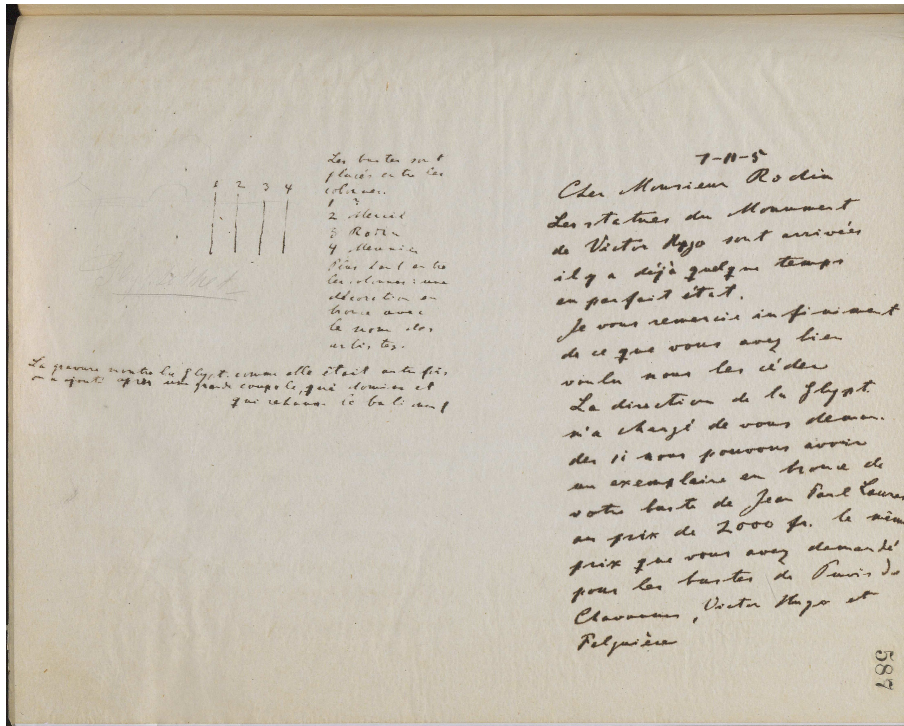 1 2 3 4
Les bustes sont
placés entre les
colonnes.
1 ?
2 Mercié
3 Rodin
4 Meunier
Plus haut entre
les colonnes: une
décoration en
bronce avec
le nom des
artistes.
La gravure montre la Glypt. comme elle était autrefois
on a ajouté après une grande coupole, qui domine et
qui rehausse le batiment
7-11-5
Cher Monsieur Rodin
Les statues du Monument
de Victor Hugo sont arrivées
il y a déjà quelque temps
en parfait état.
Je vous remercie infiniment
de ce que vous avez bien
voulu nous les céder
La direction de la Glypt.
m'a chargé de vous deman-
der si nous pouvons avoir
un exemplaire en bronce de
votre buste de Jean Paul Laurens
au prix de 2000 fr. le même
prix que vous avez demandé
pour les bustes de Puvis de
Chavannes, Victor Hugo et
Falguière
587